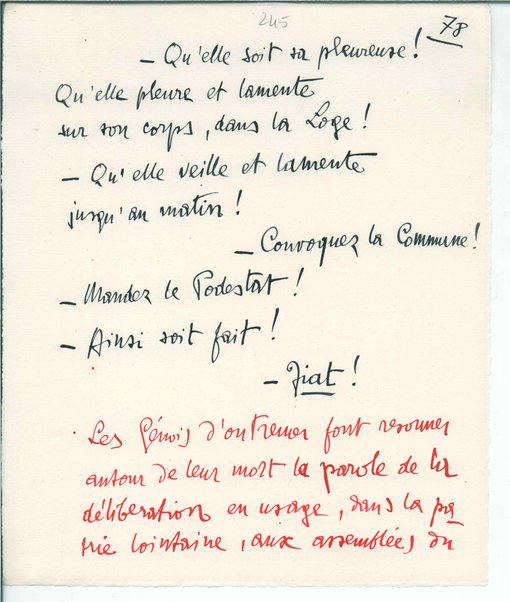 245
78
— Qu'elle soit sa pleureuse!
Qu'elle pleure et lamente
sur son corps, dans la Loge!
— Qu'elle veille et lamente
jusqu'au matin!
— Convoquez la Commune!
— Mandez le Podestat!
— Ainsi soit fait!
— Fiat!
Les Génois d'outremer font resonner
autour de leur mort la parole de la
délibération en usage, dans la pa
trie lointaine, aux assemblées du